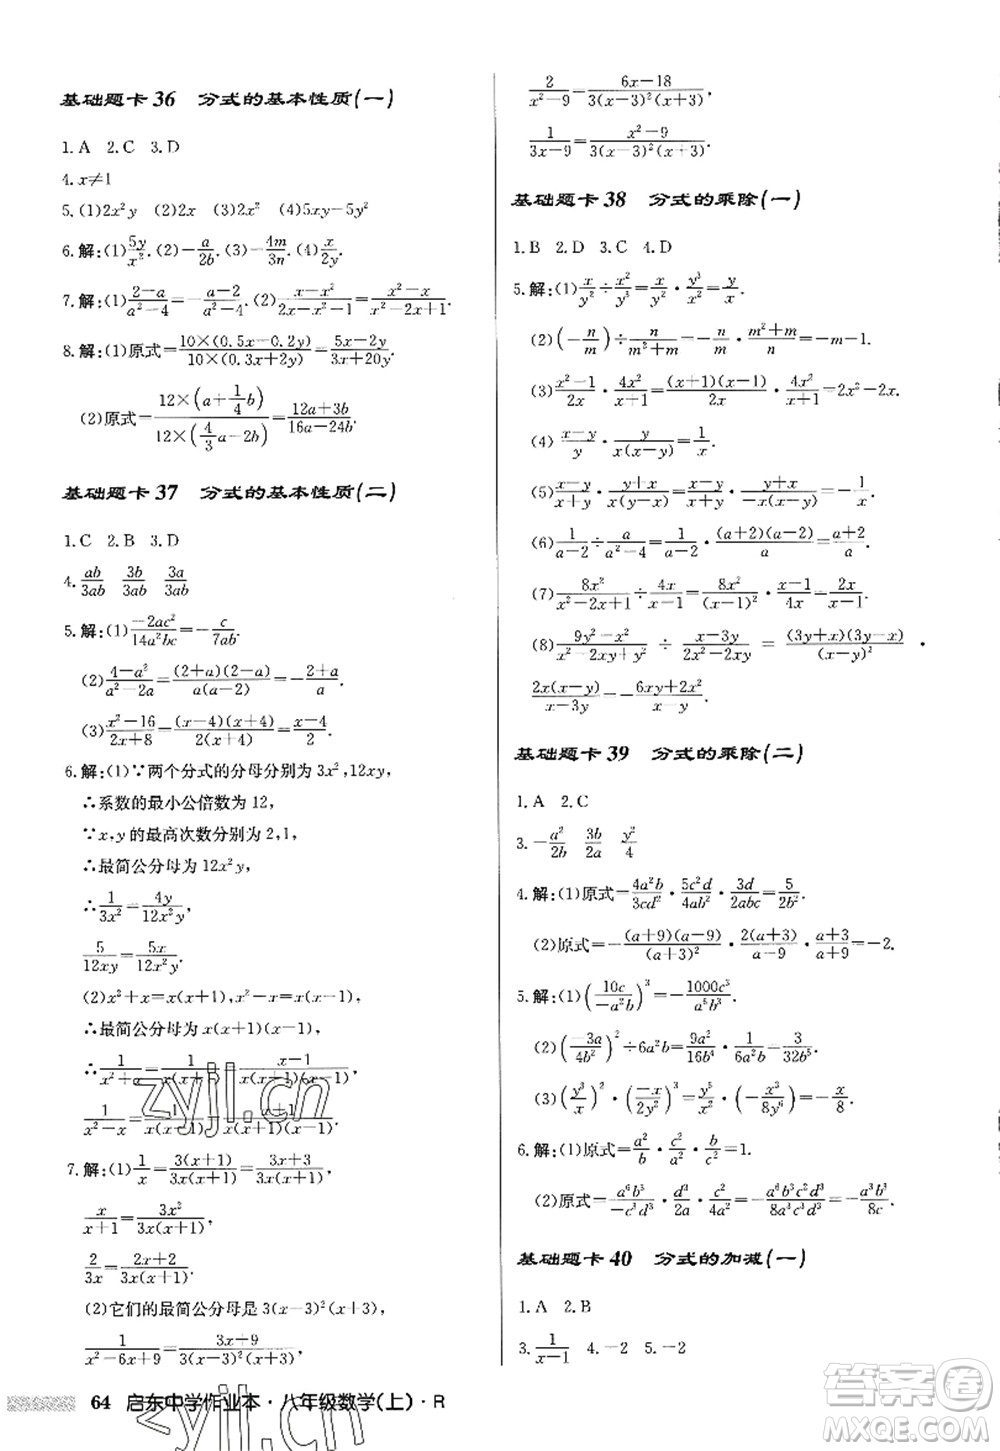 基础题卡 36　分式的基本性质(一)
1.A　2.C　3.D
4.x≠1
5.(1)2x²y　(2)2x　(3)2x²　(4)5xy−5y²
6.解:(1)5y/x².(2)−a/2b.(3)−4m/3n.(4)x/2y.
7.解:(1)(2−a)/(a²−4)=−(a−2)/(a²−4).(2)(x−x²)/(2−x²−x³)=(x²−x)/(x³+x²−2).
8.解:(1)原式=10×(0.5x−0.2y)/10×(0.3x+2y)=(5x−2y)/(3x+20y).
(2)原式=12×(a+1/4 b)/12×(4/3 a−2b)=(12a+3b)/(16a−24b).
基础题卡 37　分式的基本性质(二)
1.C　2.B　3.D
4.ab/3ab　3b/3ab　3a/3ab
5.解:(1)−2ac²/14a²bc=−c/7ab.
(2)(4−a²)/(a²−2a)=(2+a)(2−a)/a(a−2)=−(2+a)/a.
(3)(x²−16)/(2x+8)=(x−4)(x+4)/2(x+4)=(x−4)/2.
6.解:(1)∵两个分式的分母分别为3x²,12xy,
∴系数的最小公倍数为12,
∵x,y的最高次数分别为2,1,
∴最简公分母为12x²y,
∴1/3x²=4y/12x²y,
5/12xy=5x/12x²y.
(2)x²+x=x(x+1),x²−x=x(x−1),
∴最简公分母为x(x+1)(x−1),
∴1/(x²+x)=1/x(x+1)=(x−1)/x(x+1)(x−1),
1/(x²−x)=1/x(x−1)=(x+1)/x(x+1)(x−1).
7.解:(1)1/x=3(x+1)/3x(x+1),
x/(x+1)=3x²/3x(x+1),
2/3x=(2x+2)/3x(x+1).
(2)它们的最简公分母是3(x−3)²(x+3),
1/(x²−6x+9)=(3x+9)/3(x−3)²(x+3),
2/(x²−9)=(6x−18)/3(x−3)²(x+3).
1/(3x−9)=(x²−9)/3(x−3)²(x+3).
基础题卡 38　分式的乘除(一)
1.B　2.D　3.C　4.D
5.解:(1)x/y²÷x²/y³=x/y²·y³/x²=y/x.
(2)(−n/m)÷n/(m²+m)=−n/m·(m²+m)/n=−m−1.
(3)(x²−1)/2x·4x²/(x+1)=(x+1)(x−1)/2x·4x²/(x+1)=2x²−2x.
(4)(x−y)/y·y/x(x−y)=1/x.
(5)(x−y)/(x+y)·(x+y)/−x(x−y)=−1/x.
(6)1/(a−2)÷a/(a²−4)=1/(a−2)·(a+2)(a−2)/a=(a+2)/a.
(7)8x²/(x²−2x+1)÷4x/(x−1)=8x²/(x−1)²·(x−1)/4x=2x/(x−1).
(8)(9y²−x²)/(x²−2xy+y²)÷(x−3y)/(2x²−2xy)=(3y+x)(3y−x)/(x−y)²·
2x(x−y)/(x−3y)=−(6xy+2x²)/(x−y).
基础题卡 39　分式的乘除(二)
1.A　2.C
3.−a²/2b　3b/2a　y²/4
4.解:(1)原式=4a²b/3cd²·5c²d/4ab²·3d/2abc=5/2b².
(2)原式=−(a+9)(a−9)/(a+3)²·2(a+3)/(a−9)·(a+3)/(a+9)=−2.
5.解:(1)(10c/−a²b)³=−1000c³/a⁶b³.
(2)(−3a/4b²)²÷6a²b=9a²/16b⁴·1/6a²b=3/32b⁵.
(3)(y³/x)²·(−x/2y²)³=y⁶/x²·(−x³/8y⁶)=−x/8.
6.解:(1)原式=a²/b·1/c·1/c=a²/bc².
(2)原式=a⁶b³/−c³d⁹·d³/2a·c²/4a²=−a⁶b³c²d³/8a³c³d⁹=−a³b³/8cd⁶.
基础题卡 40　分式的加减(一)
1.A　2.B
3.1/(x−1)　4.−2　5.−2
64　启东中学作业本·八年级数学(上)·R
zyji.cn
答案圈
MXQE.COM